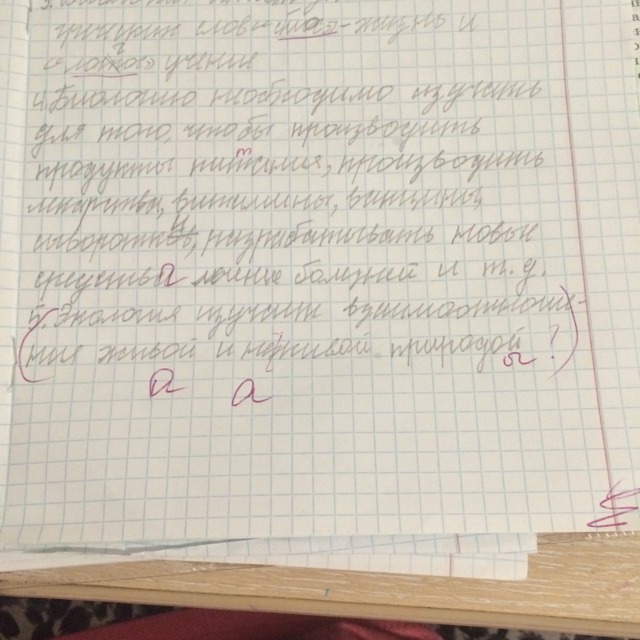 ческих слов-биос-жизнь и
логос учение
4. Биологию необходимо изучать
для того, чтобы производить
продукты питания, производить
лекарства, витамины, вакцины,
сыворотки, разрабатывать новые
средства лечение болезней и т.д.
5. Экология изучает взаимоотноше-
ния живой и неживой природой ?
а а а